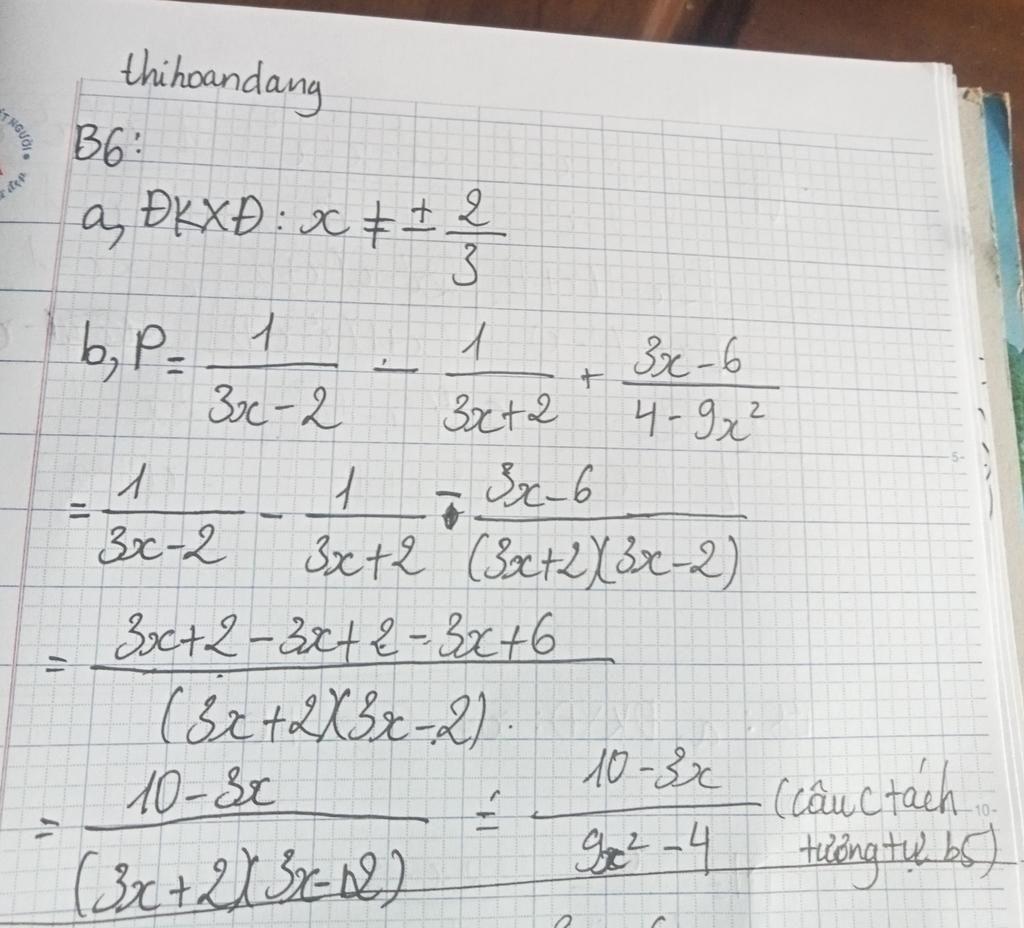 thihoandang
B6:
a, ĐKXĐ: x ≠ ± 2/3
b, P = 1/(3x-2) - 1/(3x+2) + (3x-6)/(4-9x²)
= 1/(3x-2) - 1/(3x+2) - (3x-6)/((3x+2)(3x-2))
= (3x+2-3x+2-3x+6)/((3x+2)(3x-2))
= (10-3x)/((3x+2)(3x-2)) = (10-3x)/(9x²-4) (câu c tách
tương tự b5)
5-
10-